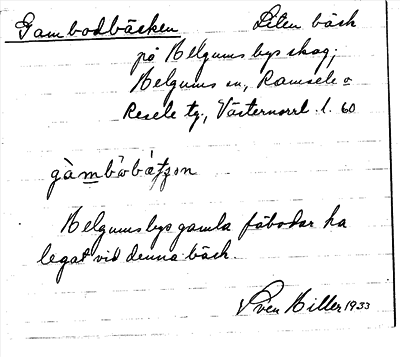 Gambodbäcken Liten bäck
på Helgums bys skog;
Helgums sn, Ramsele o
Resele tg, Västernorrl. l. 60
Helgums bys gamla fäbodar ha
legat vid denna bäck.
Sven Hiller 1933